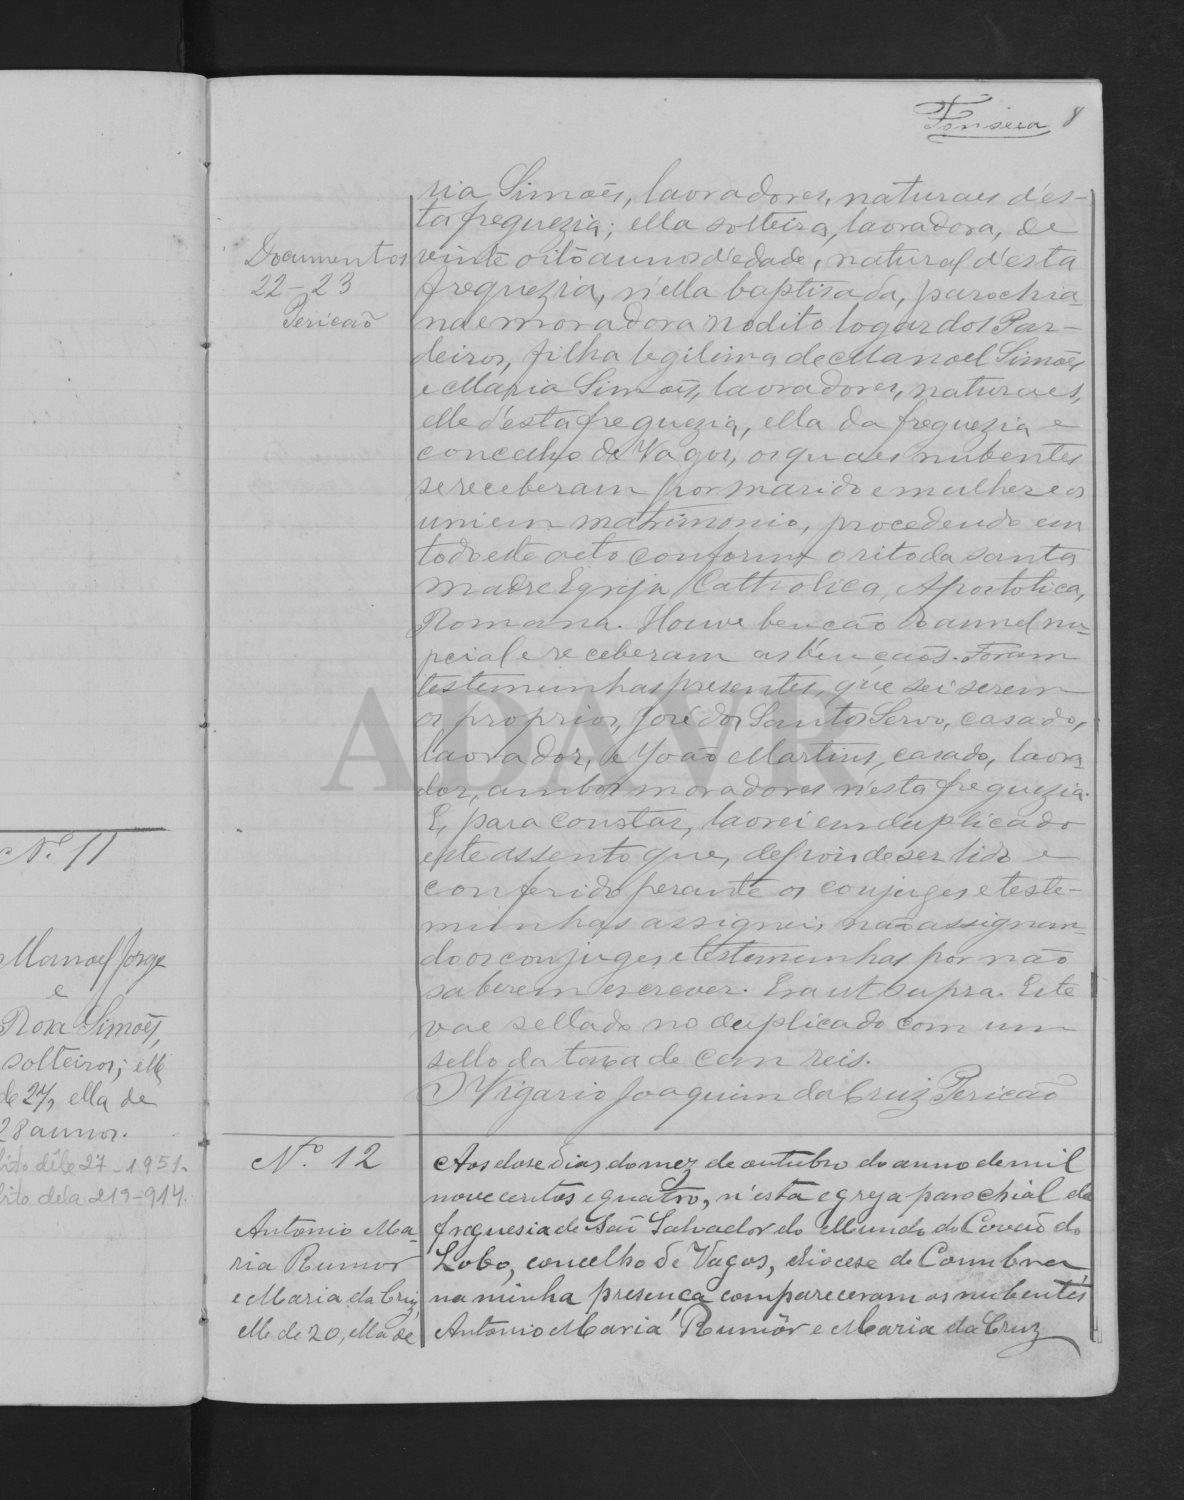 Fonseca 8
ria Simões, lavradores, naturaes d'es-
ta freguezia; ella solteira, lavradora, de
vinte oito annos d'edade, natural d'esta
freguezia, n'ella baptisada, parochia
na e moradora no dito logar dos Par-
deiros, filha legitima de Manoel Simões
e Maria Simões, lavradores, naturaes,
elle d'esta freguezia, ella da freguezia e
concelho de Vagos, os quaes nubentes
se receberam por marido e mulher e os
uni em matrimonio, procedendo em
todo este acto conforme o rito da santa
madre Egreja Catholica, Apostolica,
Romana. Houve bencão do annel nu-
pcial e receberam as bençaõs. Foram
testemunhas presentes, que sei serem
os proprios, José dos Santos Servo, casado,
lavrador, e João Martins, casado, lavra
dor, ambos moradores n'esta freguezia.
E, para constar, lavrei em duplicado
este assento que, depois de ser lido e
conferido perante os conjuges e teste-
munhas assignei, não assignan-
do os conjuges e testemunhas por não
saberem escrever. Era ut supra. Este
vae sellado no duplicado com um
sello da taxa de cem reis.
O Vigario Joaquim da Cruz Pericão
Documentos
22-23
Pericaõ
Nº 11
Manoel Jorge
e
Rosa Simões,
solteiros; elle
de 27, ella de
28 annos.
bito dêle 27-1951.
bito dela 219-914.
Nº 12
Antonio Ma-
ria Rumor
e Maria da Cruz,
elle de 20, ella de
Aos dose dias do mez de outubro do anno de mil
novecentos e quatro, n'esta egreja parochial da
freguesia de Saõ Salvador do Mundo do Covaõ do
Lobo, concelho de Vagos, diocese de Coimbra
na minha presença compareceram os nubentes
Antonio Maria Rumôr e Maria da Cruz
ADAVR